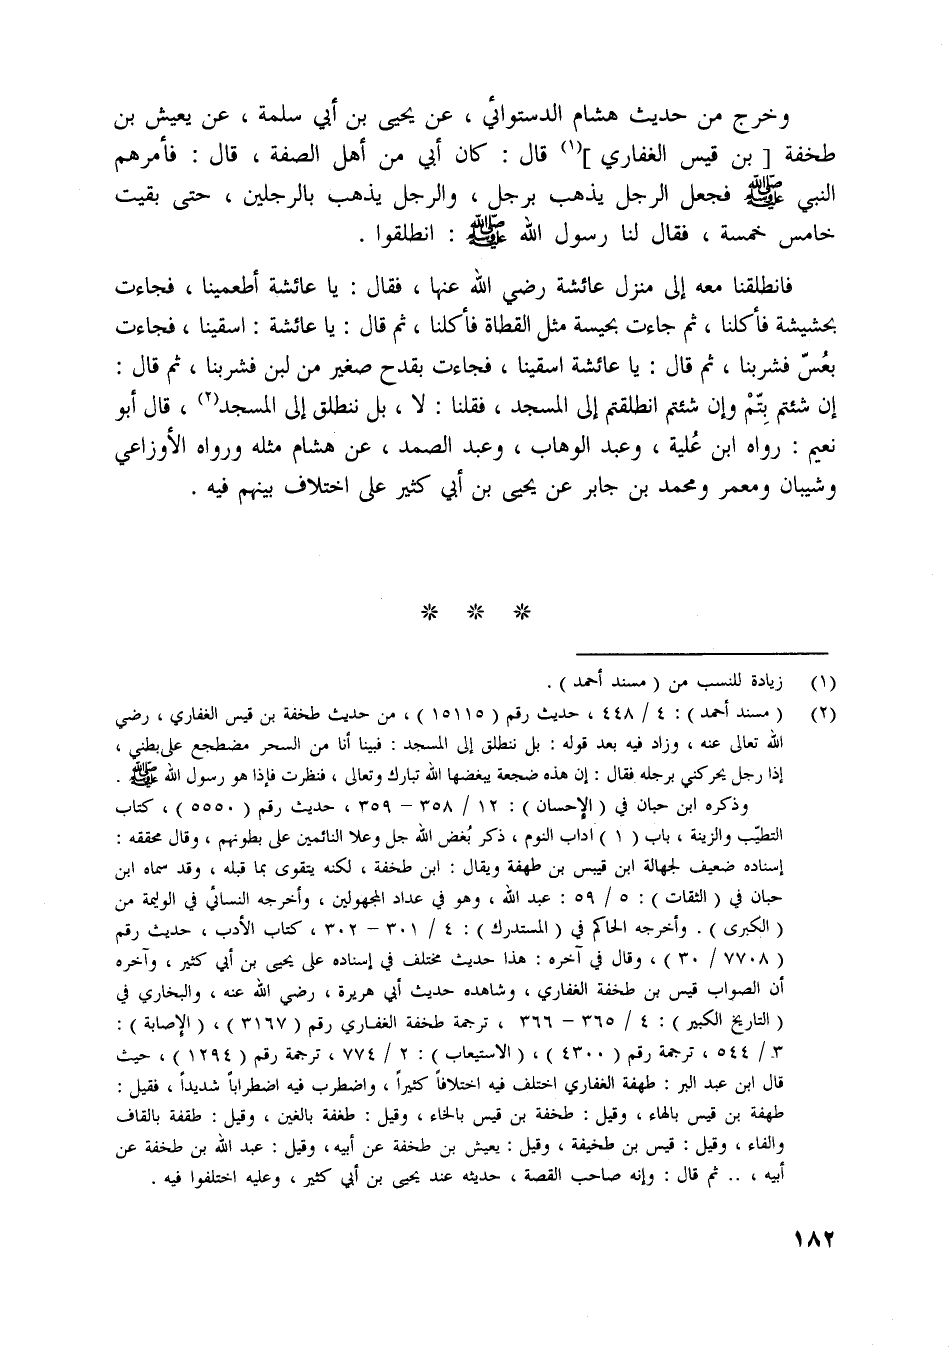 وخرج من حديث هشام الدستوائي ، عن يحيى بن أبي سلمة ، عن يعيش بن
طخفة [ بن قيس الغفاري ](١) قال : كان أبي من أهل الصفة ، قال : فأمرهم
النبي ﷺ فجعل الرجل يذهب برجل ، والرجل يذهب بالرجلين ، حتى بقيت
خامس خمسة ، فقال لنا رسول الله ﷺ : انطلقوا .
فانطلقنا معه إلى منزل عائشة رضي الله عنها ، فقال : يا عائشة أطعمينا ، فجاءت
بحشيشة فأكلنا ، ثم جاءت بحيسة مثل القطاة فأكلنا ، ثم قال : يا عائشة : اسقينا ، فجاءت
بعُسّ فشربنا ، ثم قال : يا عائشة اسقينا ، فجاءت بقدح صغير من لبن فشربنا ، ثم قال :
إن شئتم بِتّمْ وإن شئتم انطلقتم إلى المسجد ، فقلنا : لا ، بل ننطلق إلى المسجد(٢) ، قال أبو
نعيم : رواه ابن عُلية ، وعبد الوهاب ، وعبد الصمد ، عن هشام مثله ورواه الأوزاعي
وشيبان ومعمر ومحمد بن جابر عن يحيى بن أبي كثير على اختلاف بينهم فيه .
* * *
(١) زيادة للنسب من ( مسند أحمد ) .
(٢) ( مسند أحمد ) : ٤ / ٤٤٨ ، حديث رقم ( ١٥١١٥ ) ، من حديث طخفة بن قيس الغفاري ، رضي
الله تعالى عنه ، وزاد فيه بعد قوله : بل ننطلق إلى المسجد : فبينا أنا من السحر مضطجع على بطني ،
إذا رجل يحركني برجله فقال : إن هذه ضجعة يبغضها الله تبارك وتعالى ، فنظرت فإذا هو رسول الله ﷺ .
وذكره ابن حبان في ( الإحسان ) : ١٢ / ٣٥٨ – ٣٥٩ ، حديث رقم ( ٥٥٥٠ ) ، كتاب
التطيّب والزينة ، باب ( ١ ) اداب النوم ، ذكر بُغض الله جل وعلا النائمين على بطونهم ، وقال محققه :
إسناده ضعيف لجهالة ابن قيبس بن طهفة ويقال : ابن طخفة ، لكنه يتقوى بما قبله ، وقد سماه ابن
حبان في ( الثقات ) : ٥ / ٥٩ : عبد الله ، وهو في عداد المجهولين ، وأخرجه النسائي في الوليمة من
( الكبرى ) . وأخرجه الحاكم في ( المستدرك ) : ٤ / ٣٠١ – ٣٠٢ ، كتاب الأدب ، حديث رقم
( ٧٧٠٨ / ٣٠ ) ، وقال في آخره : هذا حديث مختلف في إسناده على يحيى بن أبي كثير ، وآخره
أن الصواب قيس بن طخفة الغفاري ، وشاهده حديث أبي هريرة ، رضي الله عنه ، والبخاري في
( التاريخ الكبير ) : ٤ / ٣٦٥ – ٣٦٦ ، ترجمة طخفة الغفاري رقم ( ٣١٦٧ ) ، ( الإصابة ) :
٣ / ٥٤٤ ، ترجمة رقم ( ٤٣٠٠ ) ، ( الاستيعاب ) : ٢ / ٧٧٤ ، ترجمة رقم ( ١٢٩٤ ) ، حيث
قال ابن عبد البر : طهفة الغفاري اختلف فيه اختلافاً كثيراً ، واضطرب فيه اضطراباً شديداً ، فقيل :
طهفة بن قيس بالهاء ، وقيل : طخفة بن قيس بالخاء ، وقيل : طغفة بالغين ، وقيل : طقفة بالقاف
والفاء ، وقيل : قيس بن طخيفة ، وقيل : يعيش بن طخفة عن أبيه، وقيل : عبد الله بن طخفة عن
أبيه ، .. ثم قال : وإنه صاحب القصة ، حديثه عند يحيى بن أبي كثير ، وعليه اختلفوا فيه .
١٨٢